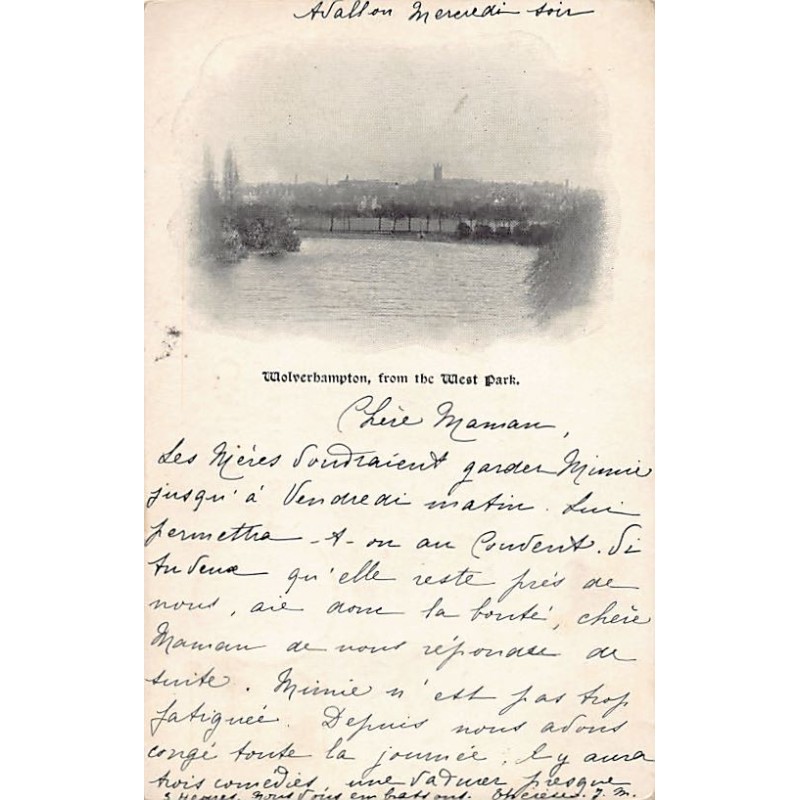 Avallon Mercredi soir
Wolverhampton, from the West Park.
Chère Maman,
Les Mères voudraient garder Mimie
jusqu'à Vendredi matin. Lui
permettra-t-on au Couvent. Si
tu veux qu'elle reste près de
nous, aie donc la bonté, chère
Maman de nous répondre de
suite. Mimie n'est pas trop
fatiguée. Depuis nous avons
congé toute la journée, il y aura
trois comédies, une va durer presque
3 heures. nous vous embrassons.